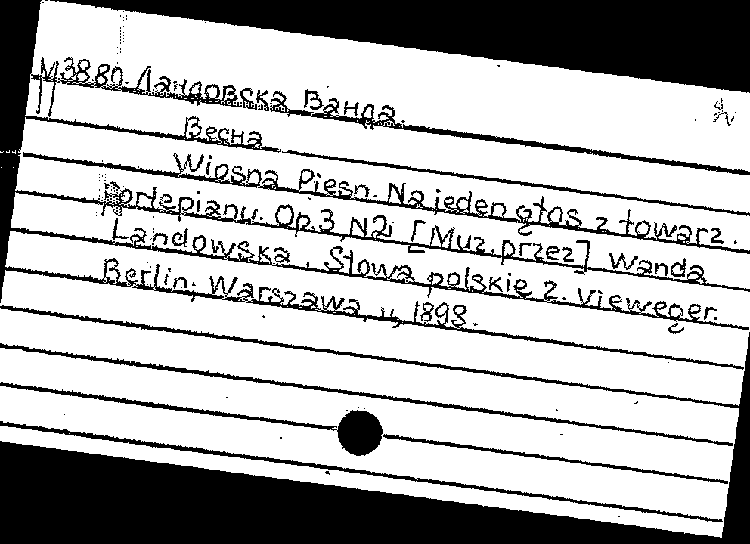 М3880. Ландовска, Ванда.
Весна
Wiosna Piesn. Na jeden głos z towarz.
Fortepianu. Op.3 N2; [Muz. przez] Wanda
Landowska. Słowa polskie z. Vieweger.
Berlin; Warszawa, 1898.